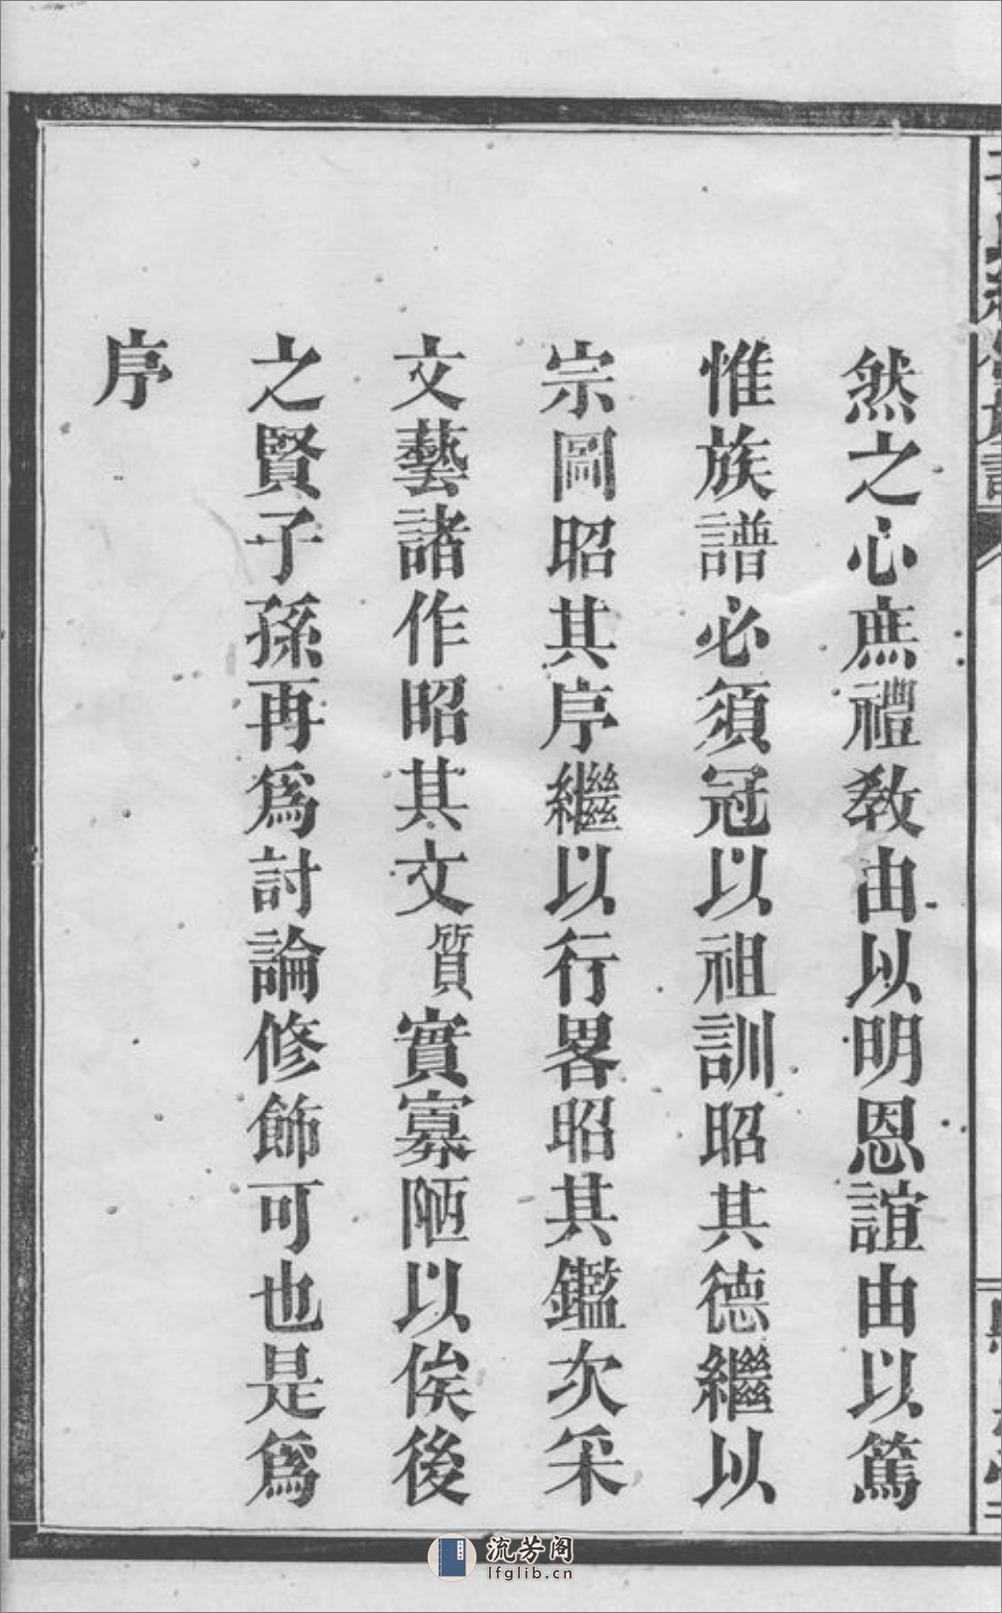 然之心庶禮教由以明恩誼由以篤
惟族譜必須冠以祖訓昭其德繼以
宗圖昭其序繼以行畧昭其鑑次采
文藝諸作昭其文質實寡陋以俟後
之賢子孫再爲討論修飾可也是爲
序
流芳阁
lfglib.cn